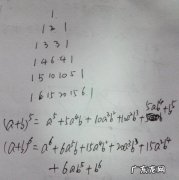 1
1 2 1
1 3 3 1
1 4 6 4 1
1 5 10 10 5 1
1 6 15 20 15 6 1
(a+b)⁵ = a⁵+5a⁴b+10a³b²+10a²b³+5ab⁴+b⁵
(a+b)⁶ = a⁶+6a⁵b+15a⁴b²+20a³b³+15a²b⁴
+6ab⁵+b⁶